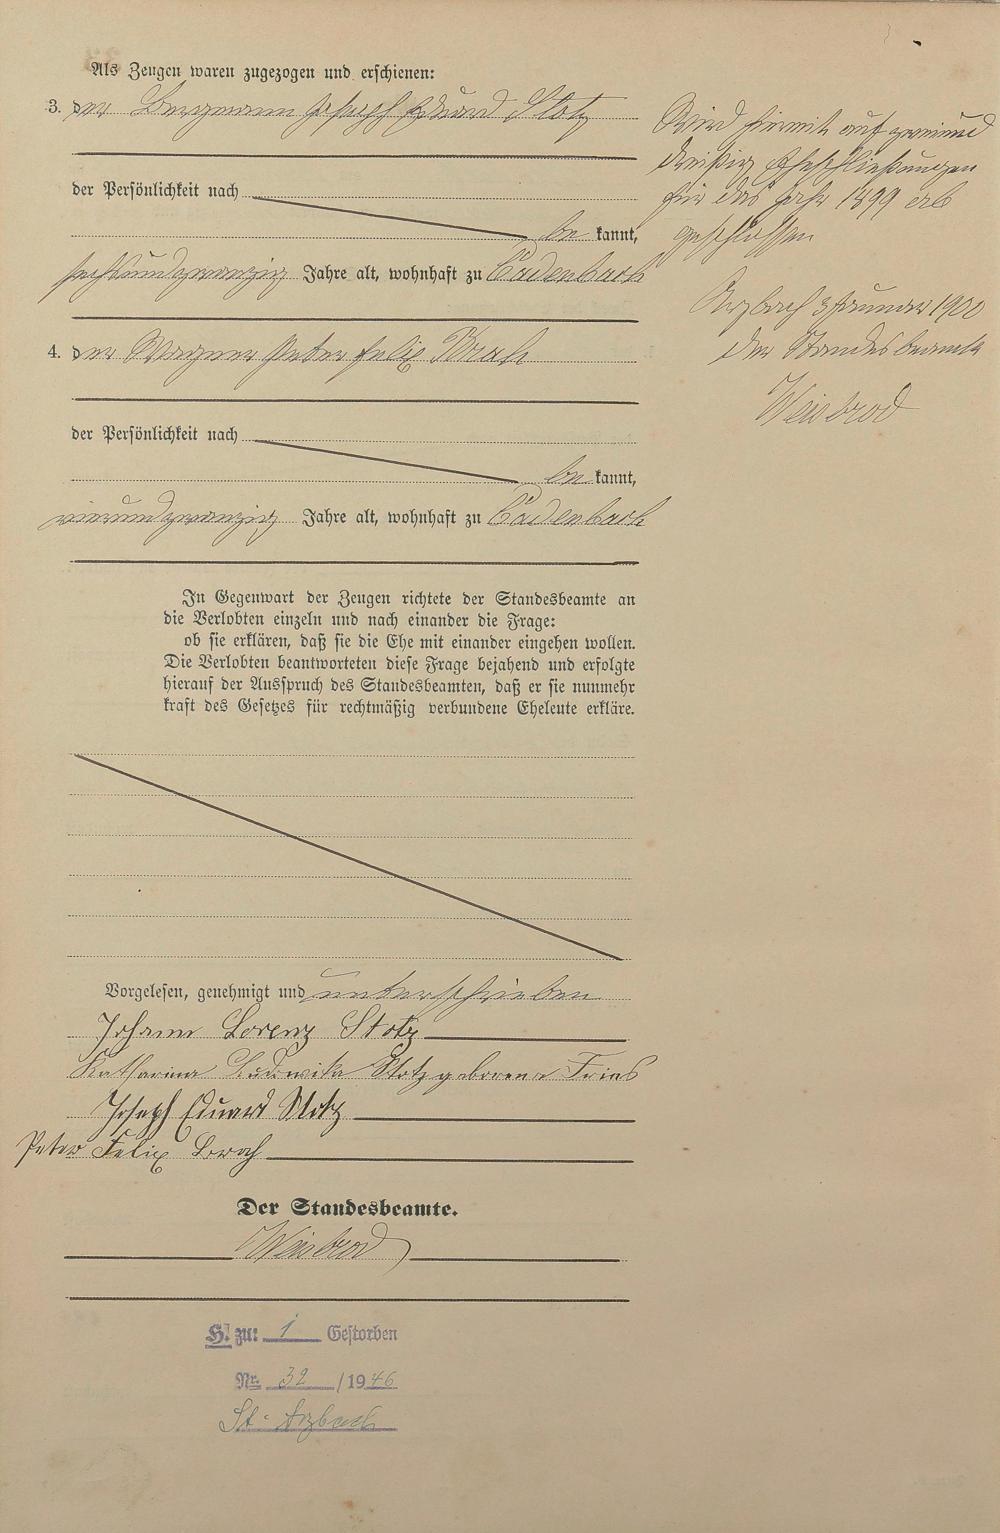 Als Zeugen waren zugezogen und erschienen:
3. der Bergmann Joseph Eduard Stotz
der Persönlichkeit nach
be kannt,
sechsundzwanzig Jahre alt, wohnhaft zu Cadenbach
4. der Wagner Peter Felix Brah
der Persönlichkeit nach
be kannt,
vierundzwanzig Jahre alt, wohnhaft zu Cadenbach
In Gegenwart der Zeugen richtete der Standesbeamte an
die Verlobten einzeln und nach einander die Frage:
ob sie erklären, daß sie die Ehe mit einander eingehen wollen.
Die Verlobten beantworteten diese Frage bejahend und erfolgte
hierauf der Ausspruch des Standesbeamten, daß er sie nunmehr
kraft des Gesetzes für rechtmäßig verbundene Eheleute erkläre.
Vorgelesen, genehmigt und unterschrieben
Johann Lorenz Stotz
Katharina Ludwika Stotz geborene Fries
Joseph Eduard Stotz
Peter Felix Brah
Der Standesbeamte.
Weisbrod
H. zu: 1 Gestorben
Nr. 32 /1946
St. Arzbach
Wird hiermit auf zweiund
dreißig Eheschließungen
für das Jahr 1899 ab
geschlossen
Arzbach 3 Januar 1900
Der Standesbeamte
Weisbrod